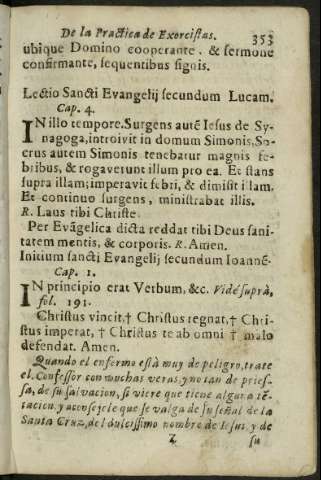 De la Practica de Exorcistas. 353
ubique Domino cooperante, & sermone
confirmante, sequentibus signis.
Lectio Sancti Evangelij secundum Lucam.
Cap. 4.
IN illo tempore. Surgens autē Iesus de Sy-
nagoga, introivit in domum Simonis, So-
crus autem Simonis tenebatur magnis fe-
bribus, & rogaverunt illum pro ea. Et stans
supra illam; imperavit febri, & dimisit illam.
Et continuo surgens, ministrabat illis.
R. Laus tibi Christe.
Per Evāgelica dicta reddat tibi Deus sani-
tatem mentis, & corporis. R. Amen.
Initium sancti Evangelij secundum Ioannē.
Cap. 1.
IN principio erat Verbum, &c. Vide suprà,
fol. 191.
Christus vincit, † Christus regnat, † Chri-
stus imperat, † Christus te ab omni † malo
defendat. Amen.
Quando el enfermo està muy de peligro, trate
el Confessor con muchas veras, y no tan de pries-
sa, de su salvacion, si viere que tiene alguna tē-
tacion, y aconsejele que se valga de su señal de la
Santa Cruz, del dulcissimo nombre de Iesus, y de
Z su